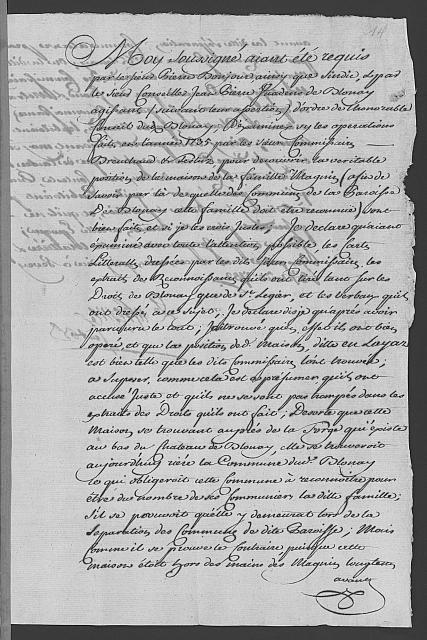 14
Moy soussigné aiant été requis
par le sieur Pierre Bonjour ainsi que sindic, et par
le Sieur Conseiller Jean Pierre de Blonay
agissant (suivant leur assertion) d'ordre de l'honorable
Conseil dud. Blonay; D'examiner sy les operations
faite, en l'année 1785 par les Sieurs Commissaires
& pour decouvrir la veritable
position de la maison de la famille Maquis (afin de
savoir par là de quelle des Communes de la Paroisse
De Blonay cette famille doit être reconnue) sont
bien faites et si je les crois justes; Je declare qu'aiant
examiné avec toute l'attention possible les Cart.
Litteralle, dressées par les dits sieurs Commissaires, les
extraits des Reconnoissances qu'ils ont tiré tant sur les
Droits de Blonay que de St. Legier, et les verbaux qu'ils
ont dressé à ce sujet; Je declare dis je qu'après avoir
parcouru le tout, j'ai trouvé qu'en effet ils ont bien
operé et que la position de d. Maison, ditte en
est bien telle que les dits Commissaires l'ont trouvée;
à suposer, comme cela est à présumer qu'ils ont
accusé juste et qu'ils ne se sont pas trompés dans les
extraits des Droits qu'ils ont fait; Desorte que cette
Maison se trouvant auprès de la Forge qui existe
au bas du Chateau de Blonay, elle se trouveroit
aujourd'huy riére la Commune dud. Blonay
ce qui obligeroit cette Commune à reconnoitre pour
être du nombre de ses Communiers la ditte famille;
S'il se prouvoit qu'elle y demeurat lors de la
Separation des Communes de dite Paroisse; Mais
comme il se prouve le Contraire puisque cette
maison étoit hors des mains des Maquis longtems
avant